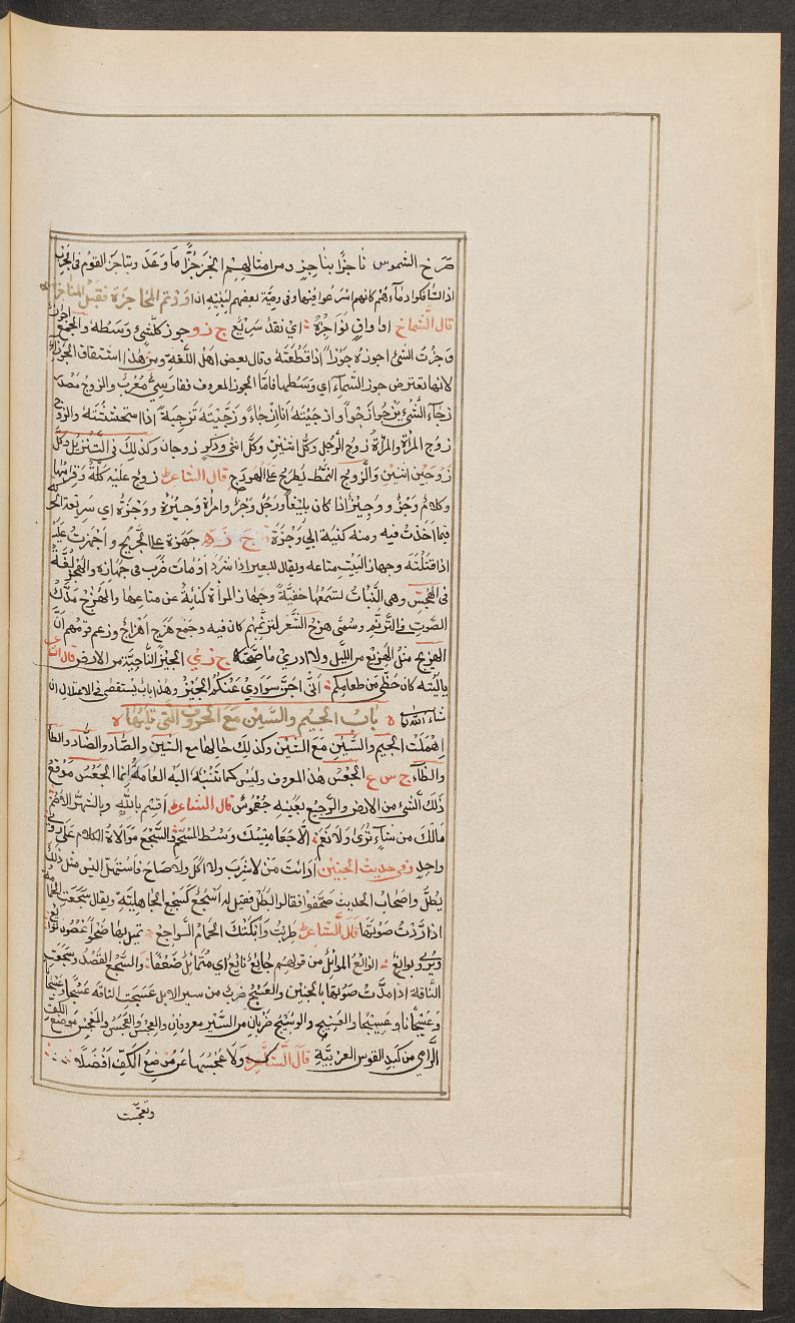 ضرخ الشموس ناجزًا بناجز ومن امثالهم انجز حُرٌّ ما وَعَدَ وتناجز القوم فى الحرب
اذا تسافكوا دماءهم كانهم اسرعوا فيها وفى وصيّة بعضهم لبنيه اذا اردتم المحاجزة فقبل المناجزة
قال الشماخ اواق نواجز اي نقد سريع ج ز و جوز كل شئ وسطه والجمع اجواز
وجزت الشئ اجوزه جوزا اذا قطعته وقال بعض اهل اللغة ومن هذا اشتقاق الجوزاء
لانها تعترض جوز السماء اي وسطها فاما الجوز المعروف ففارسي معرب والزوج مصدر
زجاء الشئ يزجو زجوا وازجيته انا ازجاءً وزجيته تزجية اذا استحثثته والزوج
زوج المرأة والمرأة زوج الرجل وكل اثنين وكل انثى وذكر زوجان وكذلك فى التنزيل من كل
زوجين اثنين والزوج النمط يطرح على الهودج قال الشاعر زوج عليه كلة وقرامها
وكلام وجز ووجيز اذا كان بليغا ورجل وجز وامرأة وجيزة ووجزة اي سريعة الحركه
فيما اخذت فيه ومنه كنية ابي وجزة ج ز ه جهزة على الجريح واجهزت عليه
اذا قتلته وجهاز البيت متاعه ويقال للبعير اذا شرد او مات ضرب فى جهازه والهجز لغة
فى الهجس وهى النبأة تسمعها خفية وجهاز المرأة كناية عن متاعها والهزج مدك
الصوت فى الترنم وسمى هزج الشعر لترنمهم كان فيه وجمع هزج اهزاج وزعم قوم ان
الهزيج مثل الهزيع من الليل ولا ادري ما صحته ج ز ي الجيز الناحية من الارض قال الشاعر
يا ليته كان حظي من طعامكم انى اجن سوادي عنكم الجيز وهذا باب يستقصى فى الاعتلال ان
شاء الله باب الجيم والسين مع الحروف التى تليها
اهملت الجيم والسين مع الشين وكذلك حالها مع السين والصاد والضاد والطاء
والظاء ج س ع الجعس هذا المعروف وليس كما تنسبه اليه العامة انما الجعس موقع
ذلك الشئ من الارض والرجيع بعينه جعموس قال الشاعر اقسم بالله وبالشهر الاصم
مالك من شاء ترى ولا نعم الا جعاميسك وسط المستحم والسجع موالاة الكلام على روي
واحد وفى حديث الجنين ارأيت من لا شرب ولا اكل ولا صاح فاستهل اليس مثل ذلك
يطل واصحاب الحديث صحفوا فقالوا البطل فقيل له اسجع كسجع الجاهلية ويقال سجعت الحمامة
اذا رددت صوتها قال الشاعر طربت وابكتك الحمام السواجع تميل بها ضحوا غصون نوائع
ويروى يوانع النوائع الموائل من قولهم جائع نائع اي متمايل ضعفا والسجع القصد وسجعت
الناقة اذا مدت صوتها بالحنين والعسج ضرب من سير الابل عسجت الناقه عسجا وعسجا
وعسجانا وعسيجا والعسيج والوسيج ضربان من السير معروفان والعجس والعجس والمعجس موضع الكف
الرامي من كبد القوس العربية قال الشاعر ولا عجسها عن موضع الكف افضلا
وتعجست